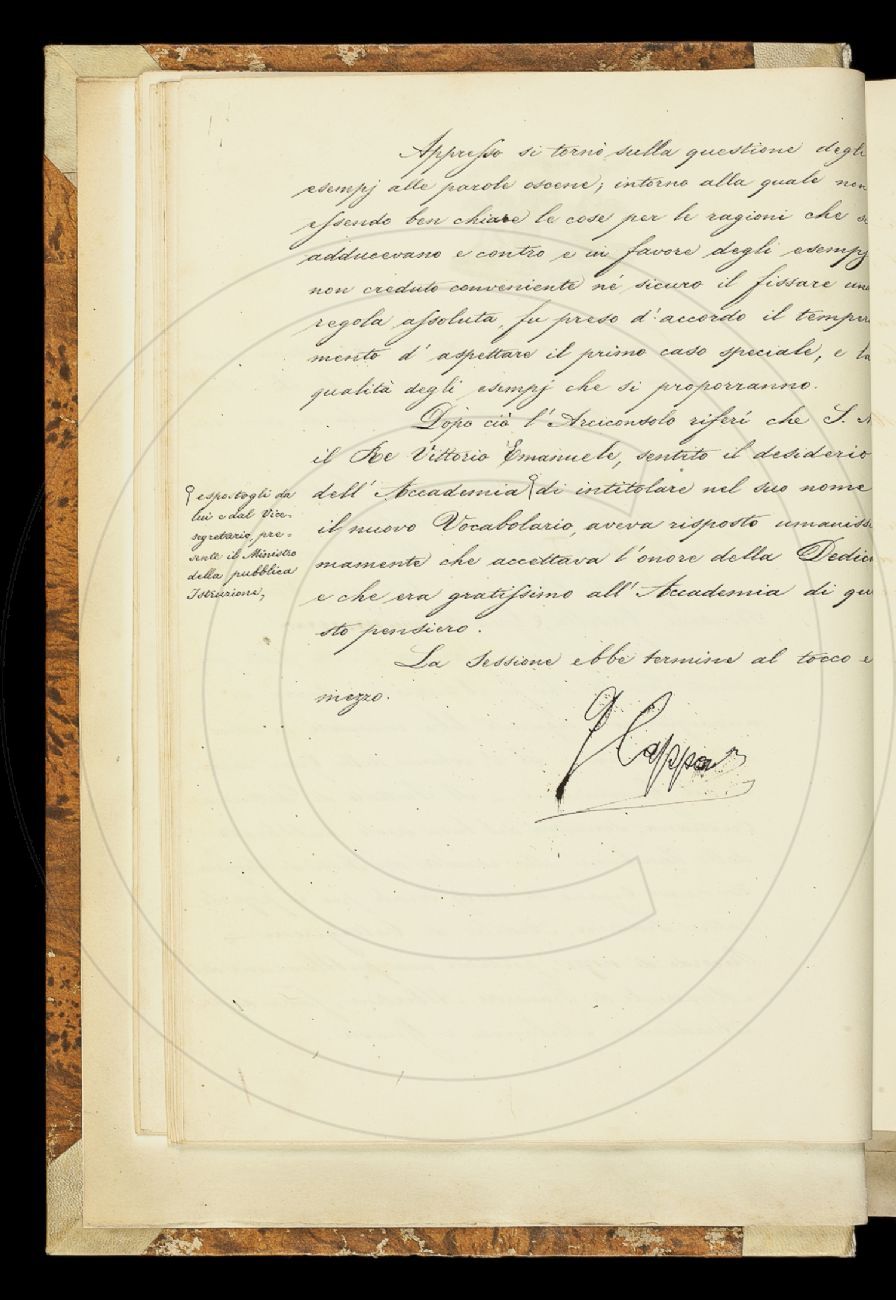 Appresso si tornò sulla questione degli
esempj alle parole oscene; intorno alla quale non
essendo ben chiare le cose per le ragioni che s
adducevano e contro e in favore degli esempj
non creduto conveniente né sicuro il fissare una
regola assoluta, fu preso d'accordo il tempera
mento d'aspettare il primo caso speciale, e la
qualità degli esempj che si proporranno.
Dopo ciò l'Arciconsolo riferì che S. M
il Re Vittorio Emanuele, sentito il desiderio
dell'Accademia di intitolare nel suo nome
espostogli da
lui e dal Vice-
segretario, pre-
sente il Ministro
della pubblica
Istruzione,
il nuovo Vocabolario, aveva risposto umaniss
mamente che accettava l'onore della Dedica
e che era gratissimo all'Accademia di que
sto pensiero.
La Sessione ebbe termine al tocco e
mezzo.
G Capponi